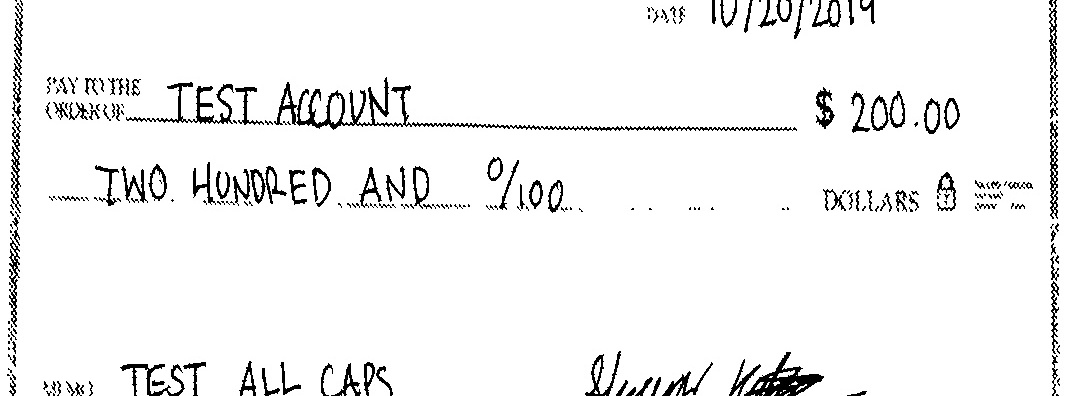 DATE 10/20/2019
PAY TO THE
ORDER OF TEST ACCOUNT $ 200.00
TWO HUNDRED AND 0/100 DOLLARS
MEMO TEST ALL CAPS